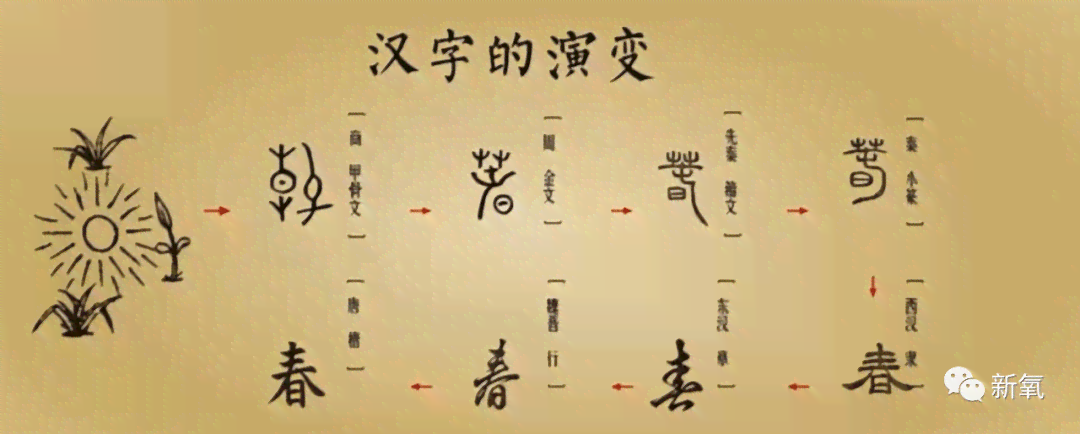 汉字的演变
商 甲骨文
周 金文
先秦 籀文
秦 小篆
西汉 隶
东汉 草
魏晋 行
唐 楷
春
春
春
春
新氧